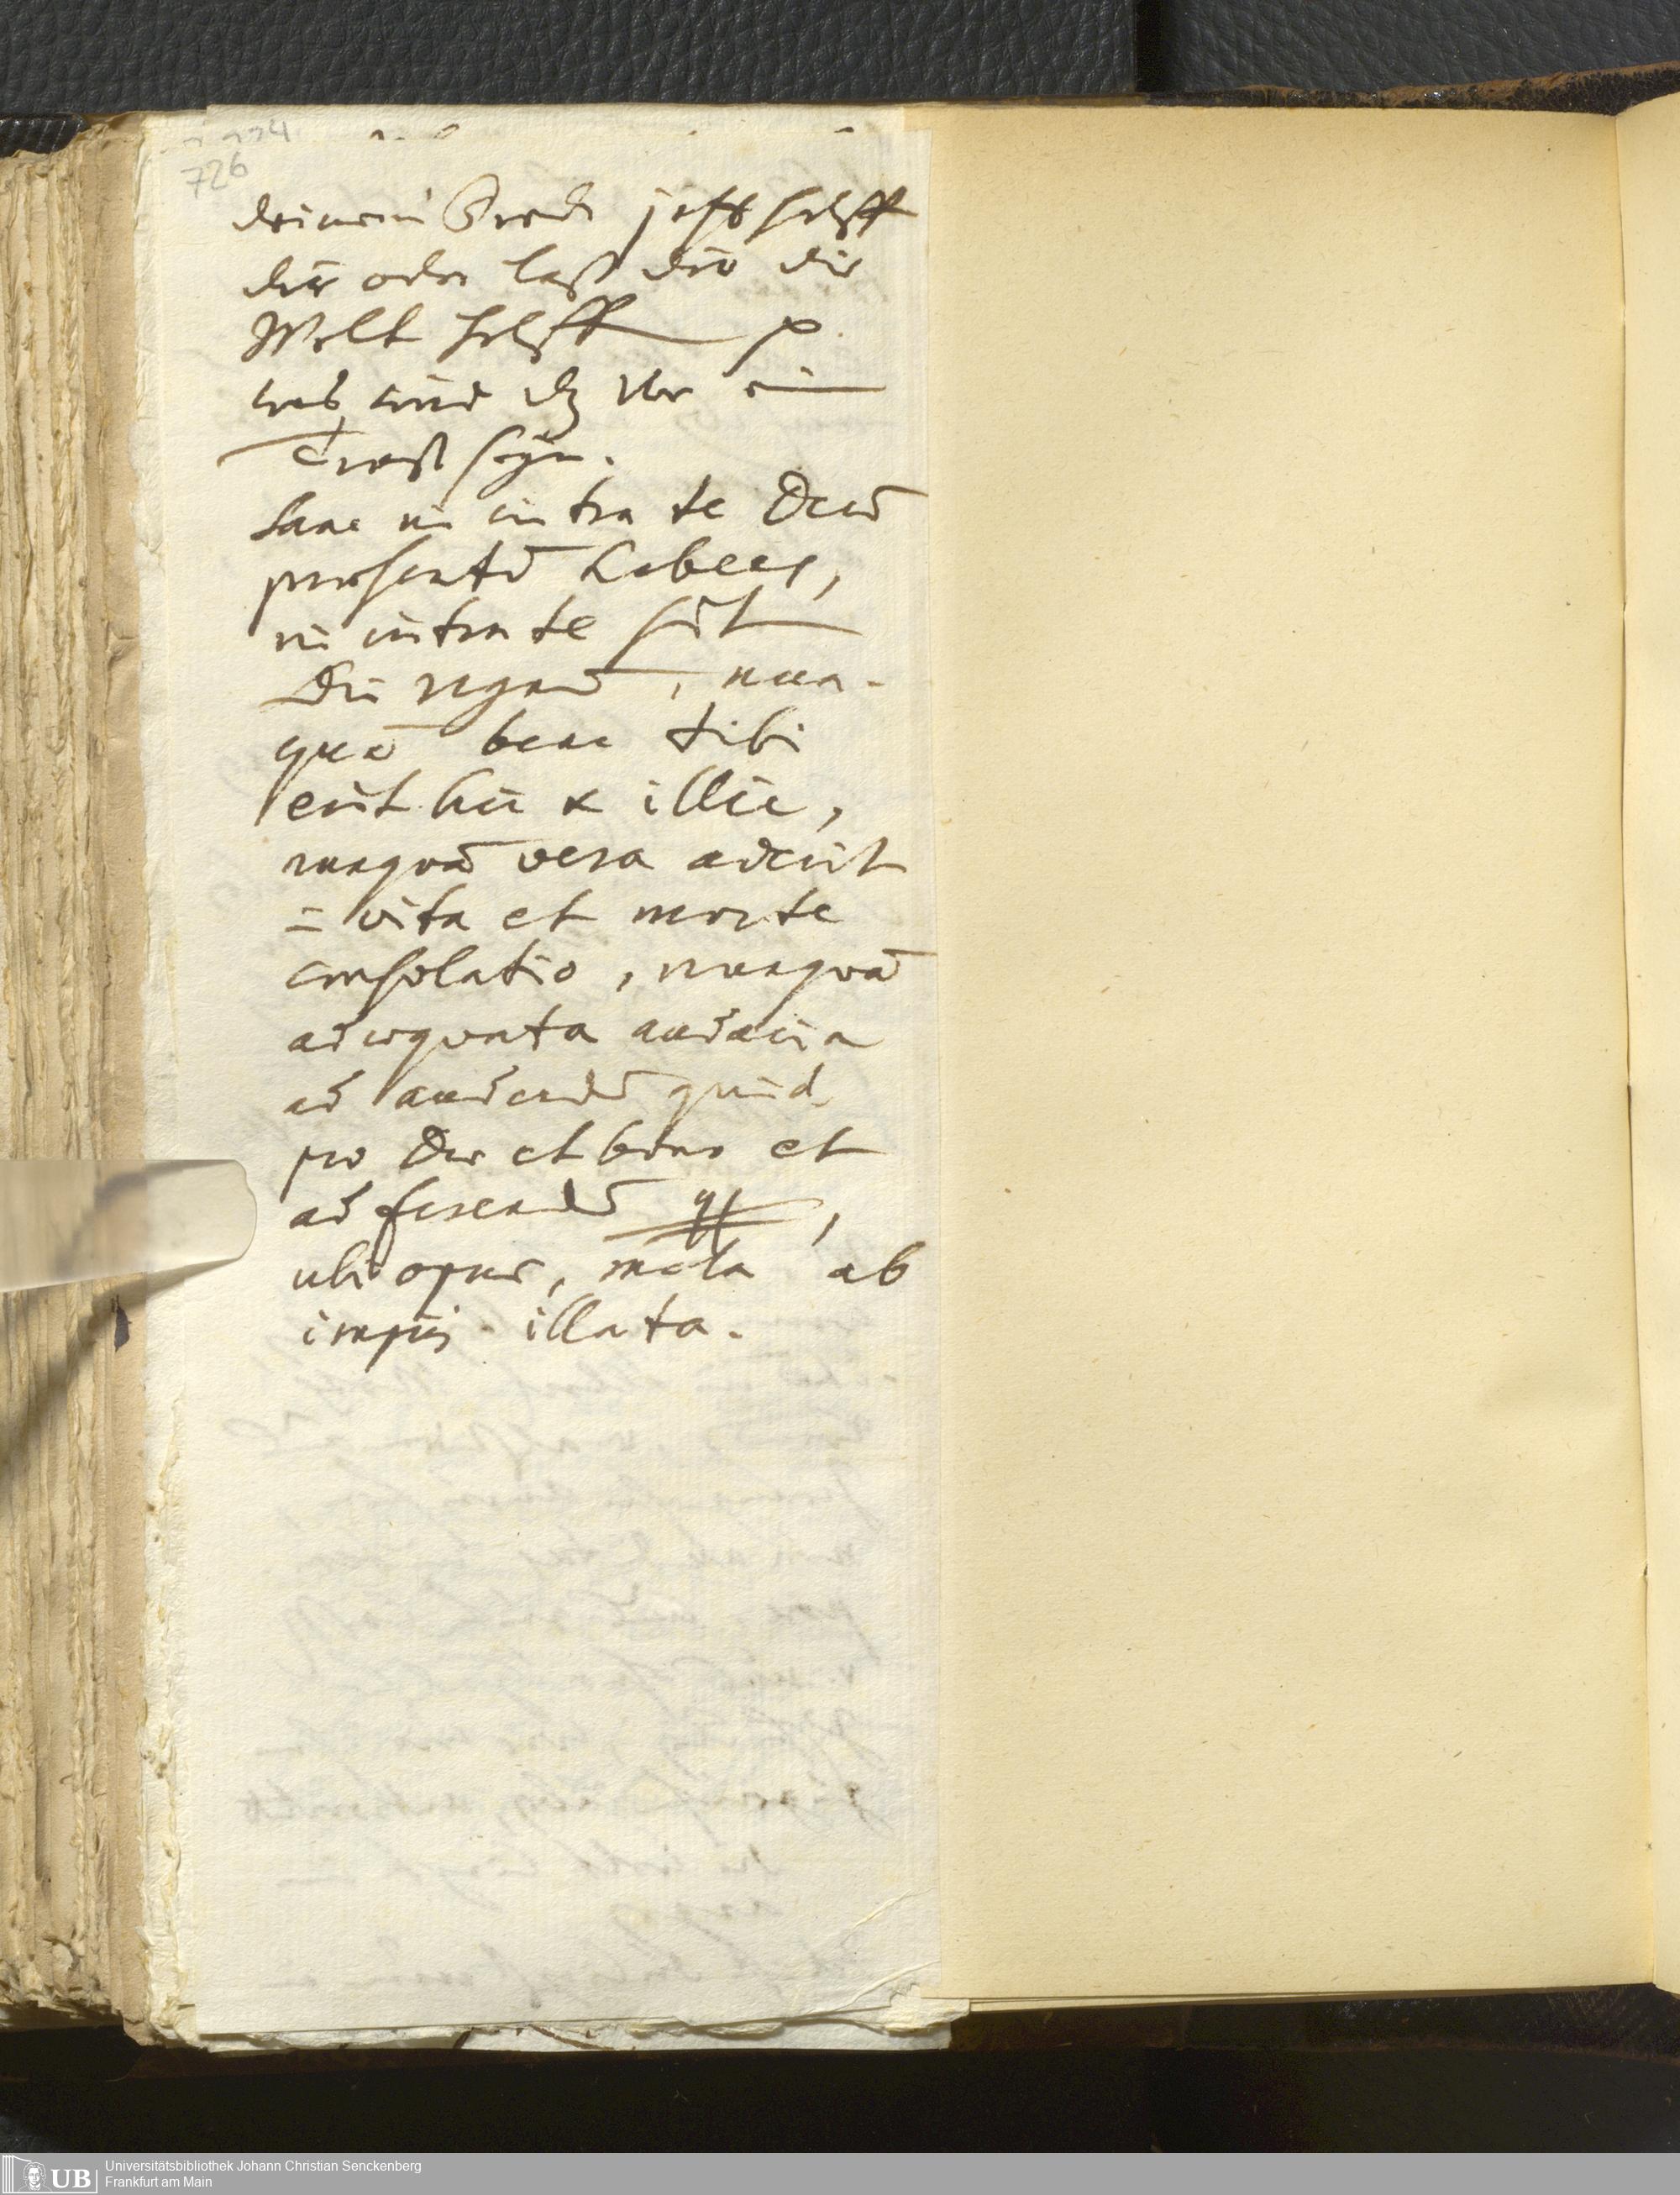 726
deinem Gott jetzt helff
dir oder laß dir die
Welt helffen
was wird dz vor ein
Trost seyn.
Sane ni intra te Deū
praesentē habeas,
ni intra te sit
Dei regnū, nun-
quā bene tibi
erit hic & illic,
nunquā vera aderit
ī vita et morte
consolatio, nunquā
adaequata audacia
ad audendū quid
pro Deo et bono et
ad ferendū
ubi opus, mala ab
impiis illata.
UB
Universitätsbibliothek Johann Christian Senckenberg
Frankfurt am Main